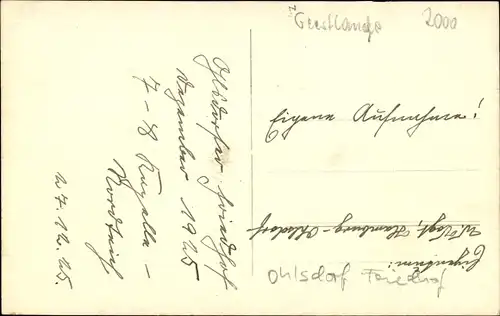 Geestlande 2000
Ohlsdorfer Friedhof
Dezember 1925
7-8 Kapelle -
Nordteich
27.12.25.
Eigene Aufnahme!
Eigentum:
W. Vogt, Hamburg-Ohlsdorf
Ohlsdorf Friedhof